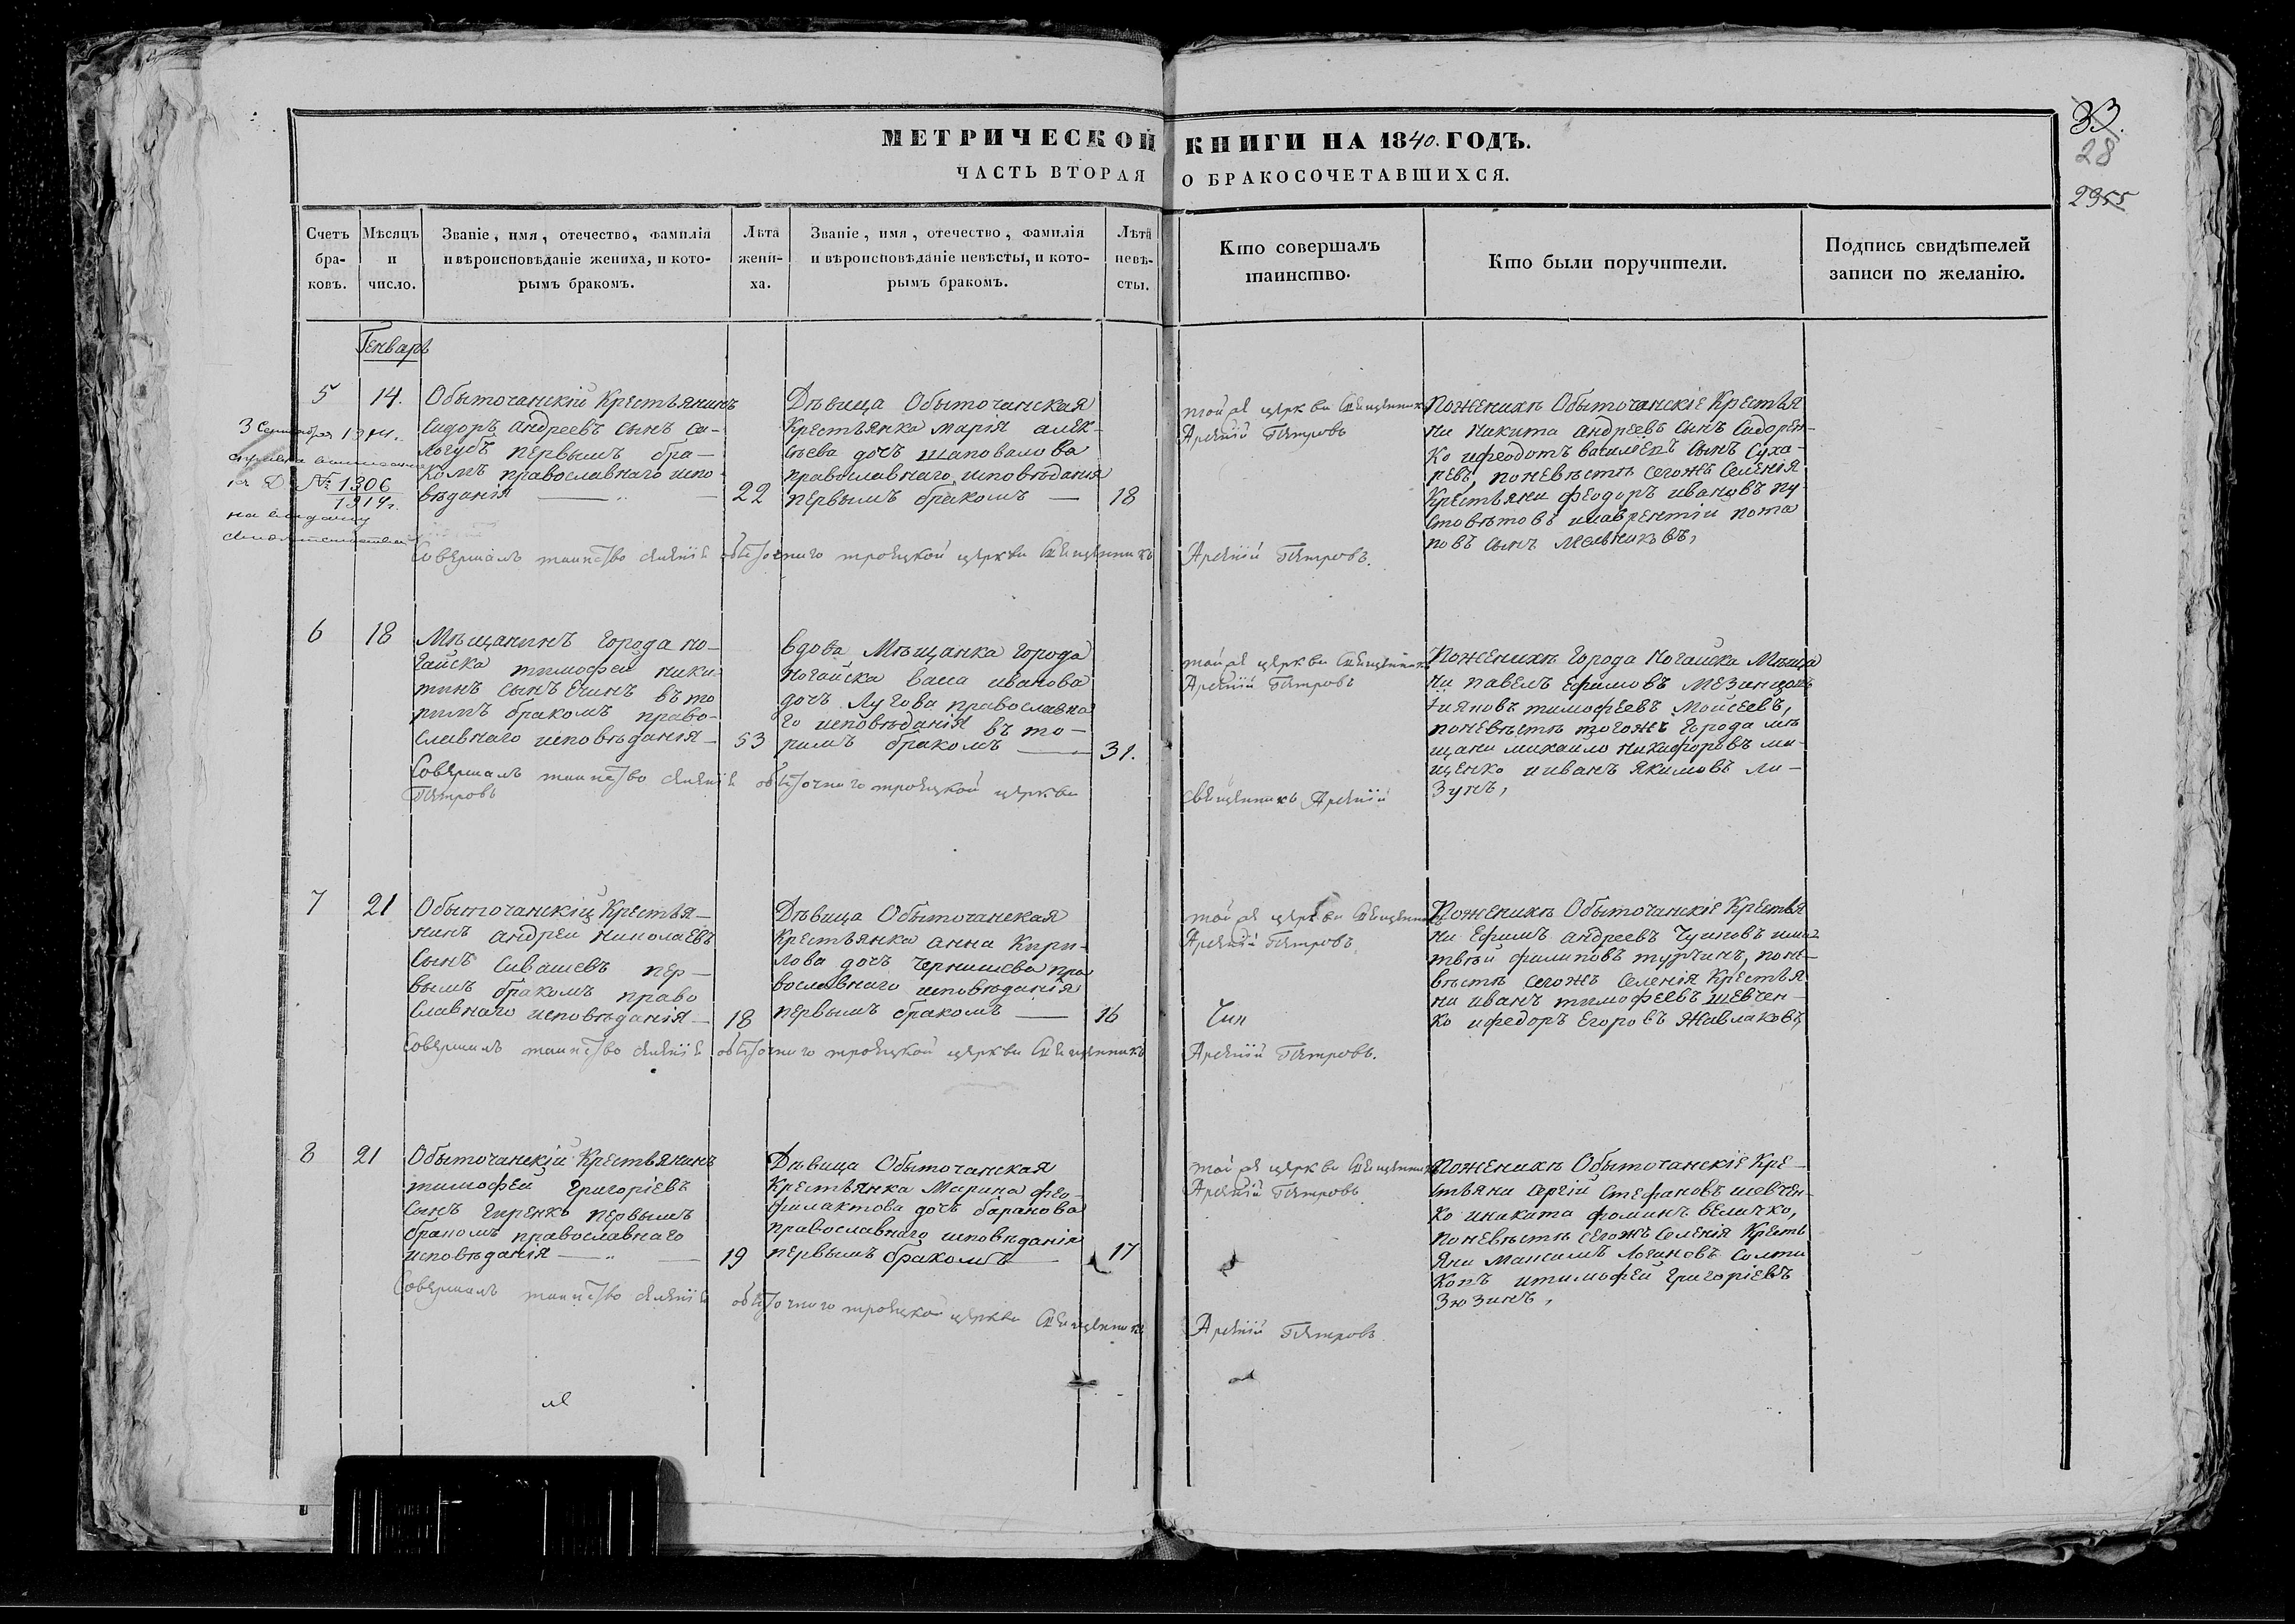 МЕТРИЧЕСКОЙ КНИГИ НА 1840. ГОДЪ.
ЧАСТЬ ВТОРАЯ О БРАКОСОЧЕТАВШИХСЯ.
33.
28
2955
Счетъ бра-ковъ.
Мѣсяцъ и число.
Званіе, имя, отечество, фамилія
и вѣроисповѣданіе жениха, и кото-
рымъ бракомъ.
Лѣта жени-ха.
Званіе, имя, отечество, фамилія
и вѣроисповѣданіе невѣсты, и кото-
рымъ бракомъ.
Лѣта невѣ-сты.
Кто совершалъ
таинство.
Кто были поручители.
Подпись свидѣтелей
записи по желанію.
Генварь
5
14.
3 Сентября 1914.
№ 1306
1914 г.
на выдачу
Обыточанскій Крестьянинъ
Сидоръ андреевъ сынъ са-
логубъ первымъ бра-
комъ православнаго испо-
вѣданія
22
Дѣвица Обыточанская
Крестьянка марія алек-
сѣева дочь шаповалова
православнаго исповѣданія
первымъ бракомъ
18
той же церкви Священникъ
Арсеній Петровъ
Пожених Обыточанскіе Крестья
ни никита андреевъ сынъ Сидорен-
ко ифеодотъ василіевъ сынъ Суха-
ревъ, поневѣстѣ сегожъ селенія
Крестьяни феодоръ ивановъ пу-
стовѣтовъ илаврентіи пота
повъ сынъ Мельниковъ,
Совершалъ таинство селенія обыточнаго троецкой церкви Священникъ Арсеній Петровъ.
6
18
Мѣщанинъ города но-
гайска тимофей ники-
тинъ сынъ Ечинъ вто
рымъ бракомъ право-
славнаго исповѣданія
53
вдова Мѣщанка города
Ногайска васа иванова
дочь Лугова православна
го исповѣданія въ то-
римъ бракомъ
31.
той же церкви Священникъ
Арсеній Петровъ
Пожениху города Ногайска Мѣща
ни павелъ Ефимовъ мезинцовъ
тимофеевъ Мойсеевъ,
поневѣстѣ тогожъ города мѣ
щани михаило никифоровъ ми-
щенко иванъ якимовъ ли-
зунъ,
Совершалъ таинство селенія обыточнаго троецкой церкви священникъ Арсеній
Петровъ
7
21
Обыточанскій Крестья-
нинъ андрей николаевъ
сынъ Сивашевъ пер-
вымъ бракомъ право
славнаго исповѣданія
18
Дѣвица Обыточанская
Крестьянка анна Кири-
лова дочь Чернишева пра
вославнаго исповѣданія
первымъ бракомъ
16
той же церкви Священникъ
Арсеній Петровъ
Пожениху Обыточанскіе Крестья
ни Ефимъ андреевъ Чуиковъ има
твѣй филиповъ турчинъ, поне-
вѣстѣ сегожъ селенія Крестья
ни иванъ тимофеевъ шевчен-
ко ифедоръ Егоровъ Жавлаковъ,
Совершалъ таинство селенія обыточнаго троецкой церкви Священникъ Арсеній Петровъ.
8
21
Обыточанскій Крестьянинъ
тимофей григоріевъ
сынъ гиренко первымъ
бракомъ православнаго
исповѣданія
19
Дѣвица Обыточанская
Крестьянка Марина фео-
филактова дочь баранова
православнаго исповѣданія
первымъ бракомъ
17
той же церкви Священникъ
Арсеній Петровъ
Пожениху Обыточанскіе Кре-
стьяни сергій стефановъ шевчен-
ко иникита фоминъ величко,
поневѣстѣ сегожъ селенія Кресть
яни Максимъ Логиновъ солти
копъ итимофей григоріевъ
Зюзинъ,
Совершалъ таинство селенія обыточнаго троецкой церкви Священникъ
Арсеній Петровъ